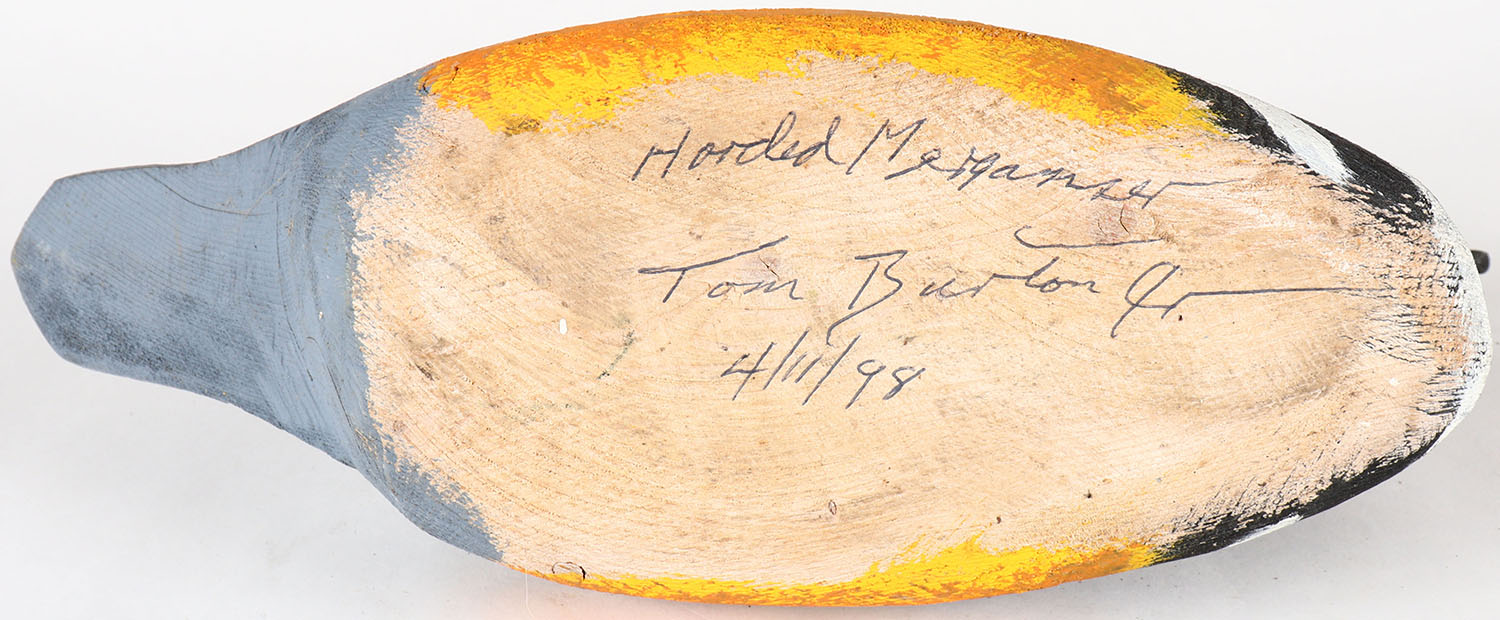 Horded Merganser
Tom Burton Jr
4/11/98